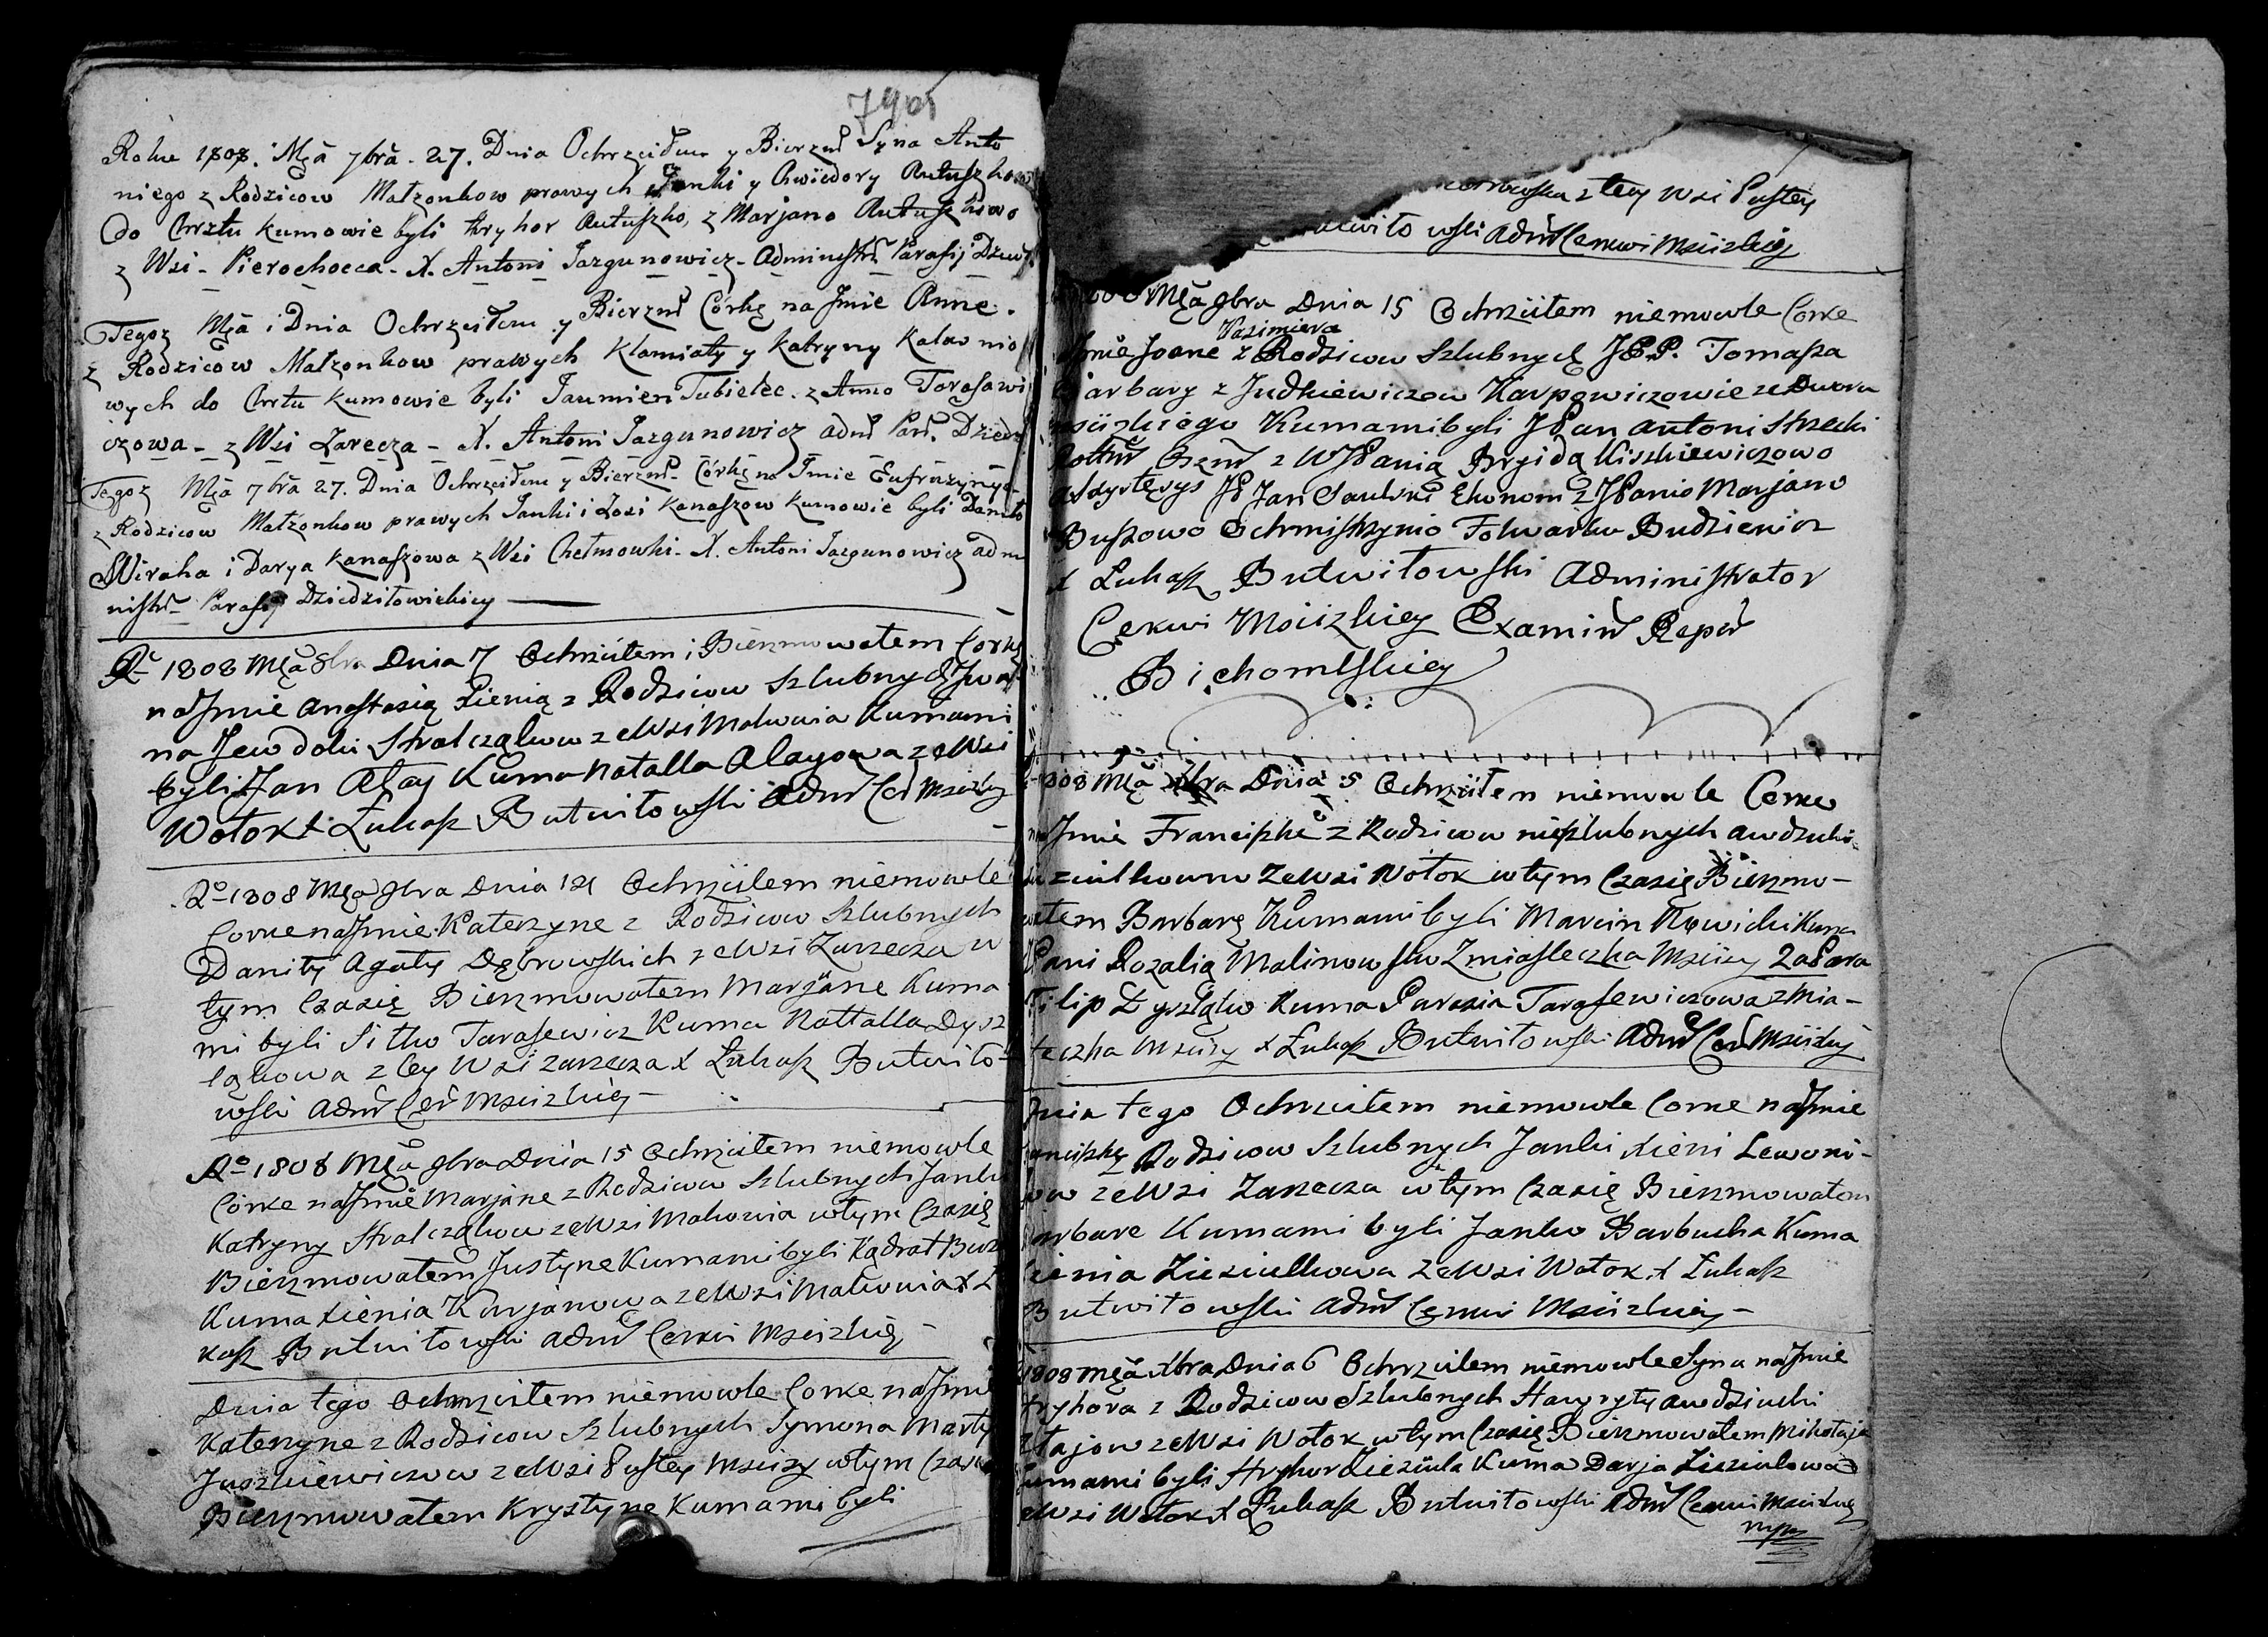 790
Roku 1808. Mca 7bra. 27. Dnia Ochrzciłem y Bierzm Syna Anto
niego z Rodzicow Małzonkow prawych Janki y Chwiedory Antuszkow
do Chrztu kumowie byli Hryhor Antuszko, z Marjano Antuszkowo
z Wsi - Pierochocca - X. Antoni Jazgunowicz - Administr Parafij Dziedz
Tegoz Mca i Dnia Ochrzciłem y Bierzm Córkę na Jmie Anne.
z Rodzicow Małzonkow prawych Klamiaty y Katryny Kalawnio
wych do Chrztu Kumowie byli Jaumien Tubielec. z Anno Tarasowi
czowa - z Wsi Zarecza - X. Antoni Jazgunowicz adm Par. Dziedz
Tegoz Mca 7bra 27. Dnia Ochrzciłem y Bierzm - Córkę na Jmie Eufruzynyą
z Rodzicow Małzonkow prawych Janki i Zosi Kanaszow Kumowie byli Daniło
Wiraha i Darya Kanaszowa z Wsi Chełmowki - X. Antoni Jazgunowicz adm
nistr - Parafij Dziedziłowickiey
Ro 1808 Mca 8bra Dnia 7 Ochrzciłem i Bierzmowałem Corkę
na Jmie Anastazią Xienią z Rodzicow Szlubnych Jwa
na Jewdoki Stralcząkow ze Wsi Makowia Kumami
byli Jan Ałay Kuma Natalla Alayowa ze Wsi
Wołok X. Łukasz Butwiłowski Adm Cer Mscizkiy
Ro 1808 Mca 9bra Dnia 121 Ochrzciłem niemowle
Corke na Jmie Katerzyne z Rodzicow Szlubnych
Daniły Agaty Dąbrowskich ze Wsi Zarzecza w
tym Czasię Bierzmowałem Marjane Kuma
mi byli Sitko Tarasewicz Kuma Nattalla Dysz
ląkowa z tey Wsi Zarzecza X Łukasz Butwiło
wski Adm Cer Mscizkiey
Ro 1808 Mca 9bra Dnia 15 Ochrzciłem niemowle
Corke na Jmie Marjane z Rodzicow Szlubnych Janki
Katryny Stralcząkow ze Wsi Makowia wtym Czasię
Bierzmowałem Justyne Kumami byli Kądrat
Kuma Xienia Kurjanowa ze Wsi Makowia X Łu
kasz Butwiłowski Adm Cerkwi Mscizkiey
Dnia tego Ochrzciłem niemowle Corke na Jmie
Katerzyne z Rodzicow Szlubnych Symona Marty
Juszkiewiczow ze Wsi Pustey Mscizy wtym Czasie
Bierzmowałem Krystyne Kumami byli
z tey Wsi Pustey
wiłowski Adm Cerkwi Mscizkiey
Mca 9bra Dnia 15 Ochrzciłem niemowle Corke
Kazimiera
Jmie Joane z Rodzicow Szlubnych JP.P. Tomasza
Barbary z Judkiewiczow Karpowiczowie ze Dworu
Mscizkiego Kumami byli JPan Antoni Strzecki
z WJPanią Brygidą Kiszkiewiczowo
Assystęsys JP Jan Saulski Ekonom z JPanio Marjano
Buszowo Ochmistrzynio Folwarku Budzienicz
X Łukasz Butwiłowski Administrator
Cerkwi Mscizkiey Examin Repr
Bichomlskiey
1808 Mca Xbra Dnia 5 Ochrzciłem niemowle Corke
na Jmie Franciszke z Rodzicow nieszlubnych Awdzuki
ziulkowno ze Wsi Wołok wtym Czasię Bierzmo-
wałem Barbarę Kumami byli Marcin Nowicki Kuma
JPani Rozalią Malinowsko z miasteczka Mscizy 2a Para
Filip Dyszląko Kuma Parasia Tarasewiczowa z Mia-
teczka Mscizy X Łukasz Butwiłowski Adm Cer Mscizkiy
Dnia tego Ochrzciłem niemowle Corke na Jmie
Franciszkę Rodzicow Szlubnych Janki Xieni Lewoni-
ow ze Wsi Zarzecza wtym Czasię Bierzmowałem
Barbare Kumami byli Janko Barbucha Kuma
Xienia Ziuziulkowa ze Wsi Wołok X Łukasz
Butwiłowski Adm Cerkwi Mscizkiey -
1808 Mca Xbra Dnia 6 Ochrzciłem niemowle Syna na Jmie
Hryhora z Rodzicow Szlubnych Hawryły Awdziuchi
Ałajow ze Wsi Wołok wtym Czasię Bierzmowałem Mikołaja
Kumami byli Hryhor Ziuziula Kuma Darja Ziuziulowa
ze Wsi Wołok X Łukasz Butwiłowski Adm Cerkwi Mscizkiey
mp